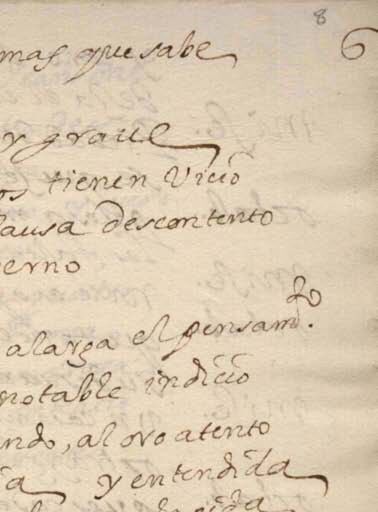 8
mas que sabe 6
y graue
os tienen Vicio
causa descontento
erno
alarga el pensam.to
notable indicio
ando, al oro atento
ia y entendida